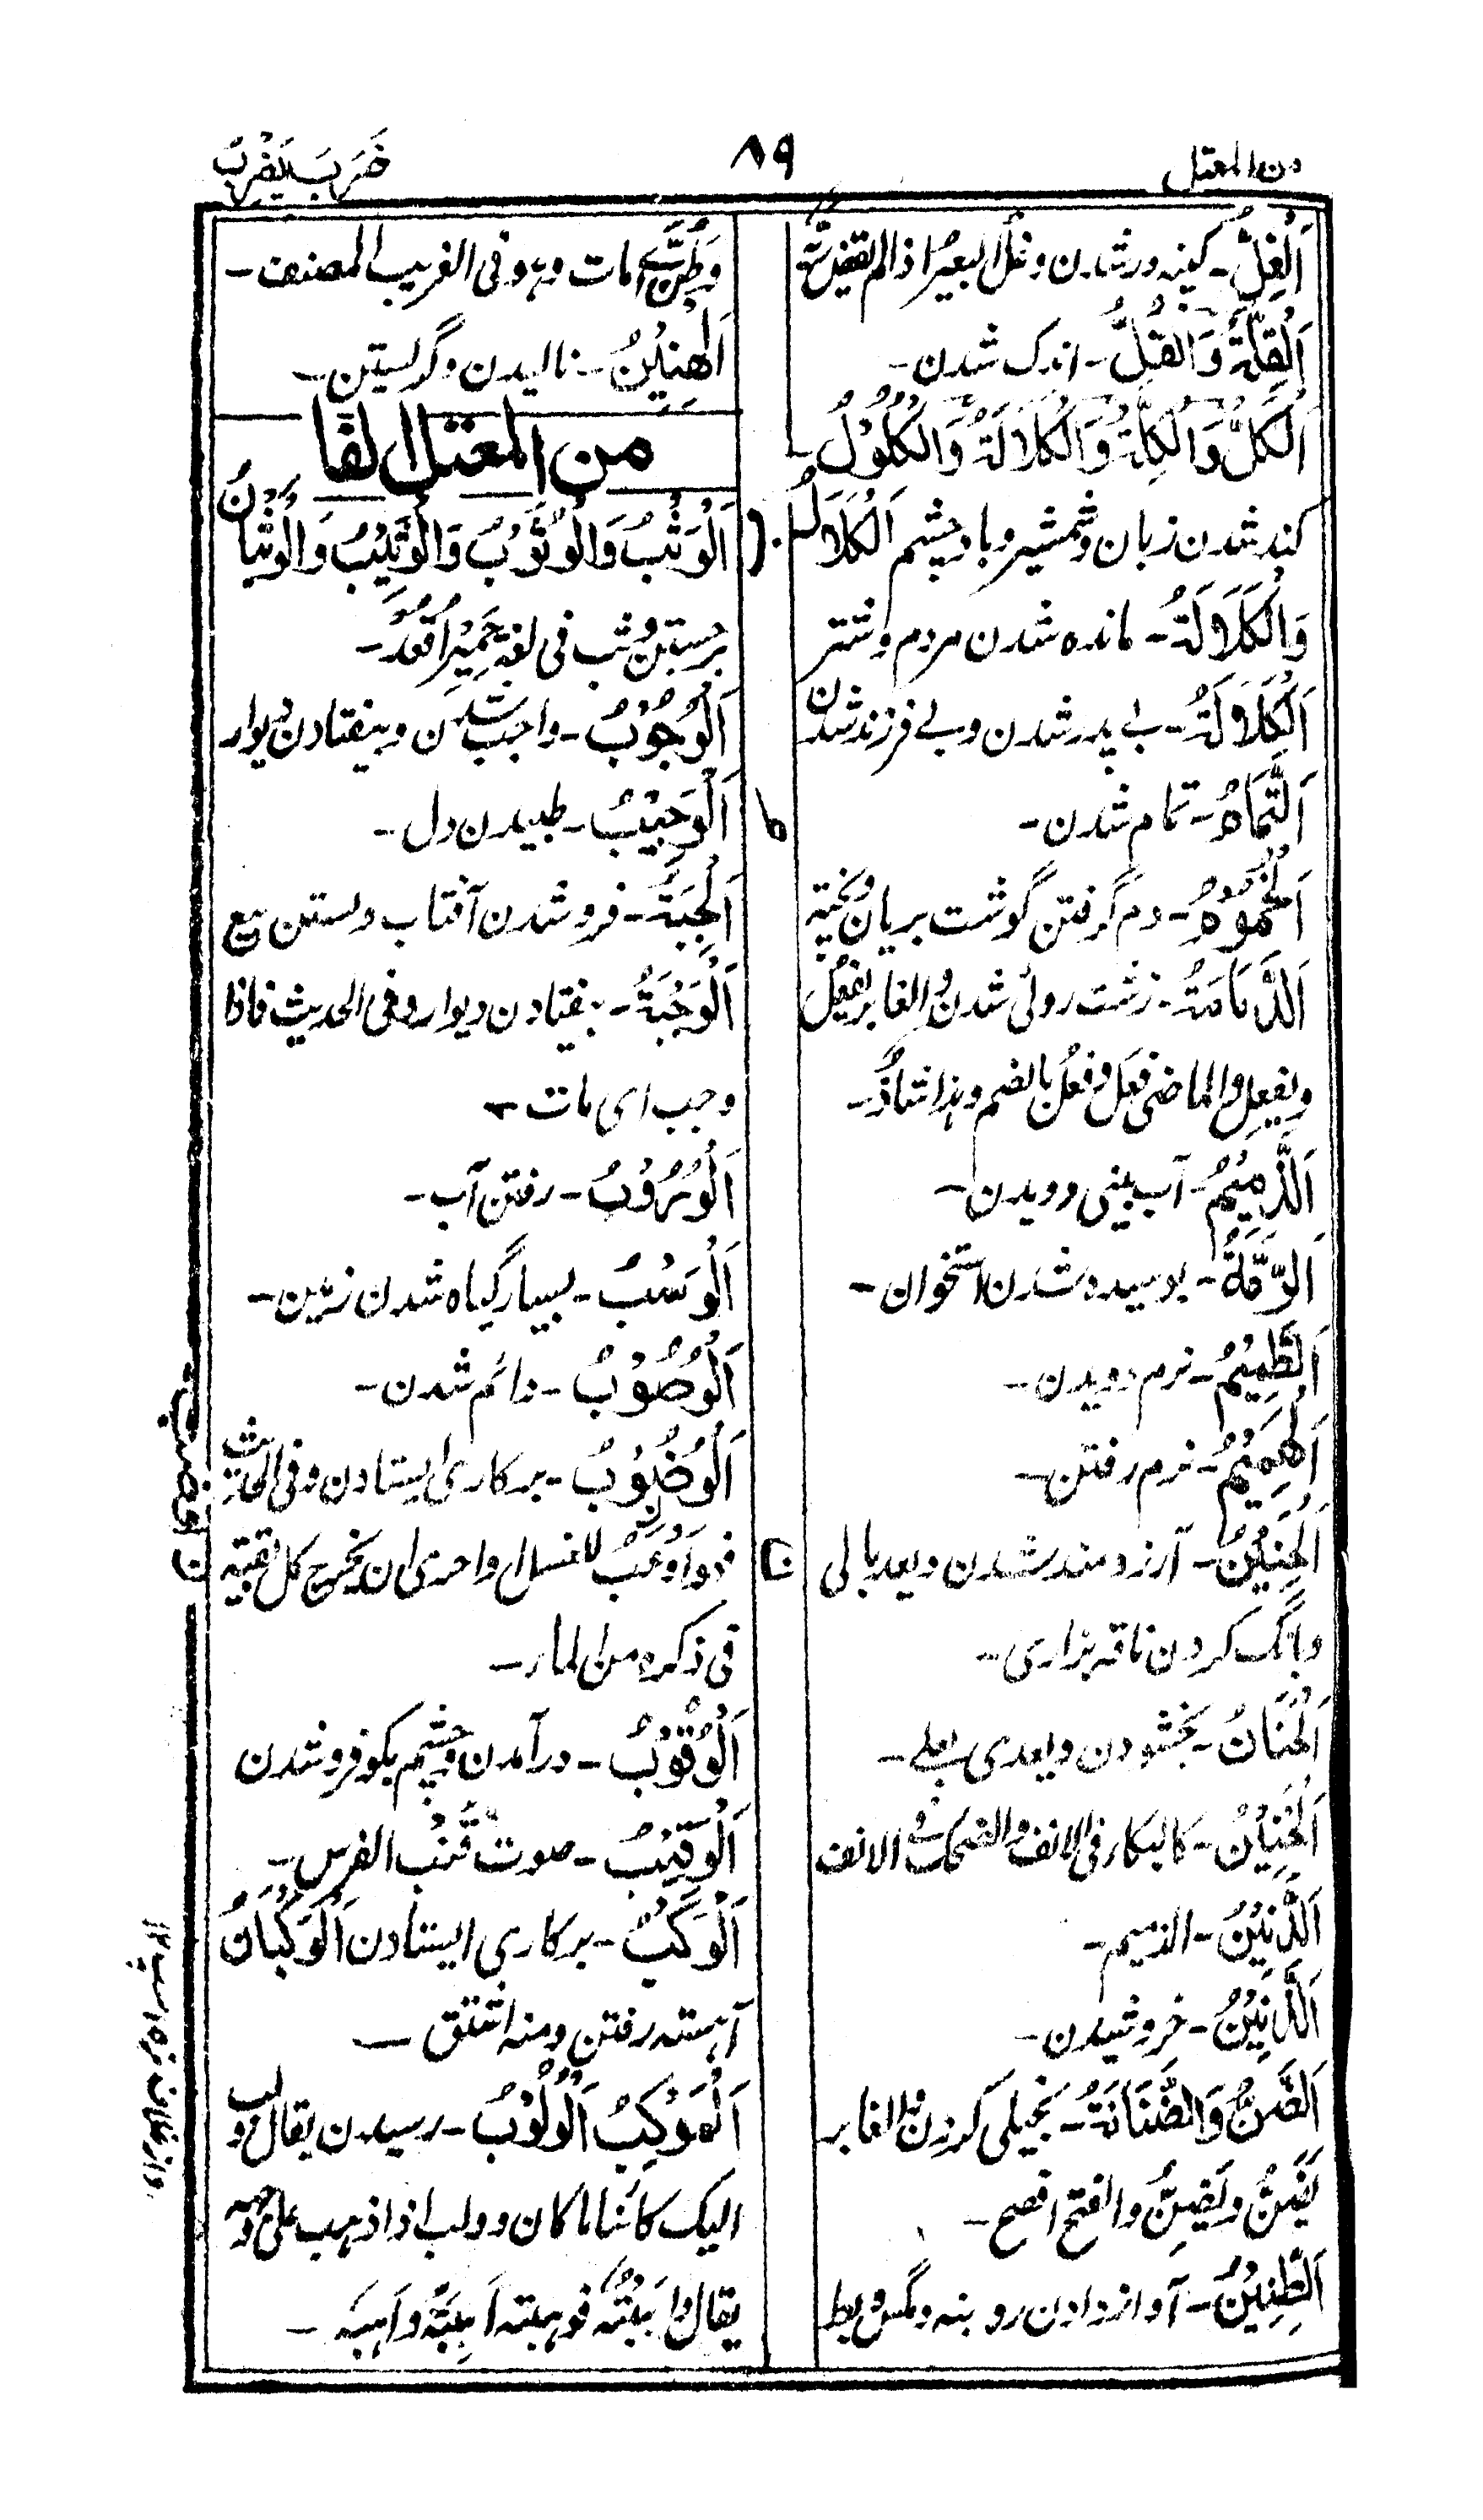 من المعتل
۸۹
ضَرَبَ یَضْرِبُ
اَلْغِلُّ۔ کینہ ور شدن وغل البعیر اذا لم یقض
اَلْقِلَّةُ وَالْقُلُّ۔ اندک شدن۔
اَلْكَلُّ وَالْكِلَّةُ وَالْكَلَالَةُ وَالْكُلُوْلُ۔
کند شدن زبان وشمشیر وباد وچشم اَلْكَلَالُ
وَالْكَلَالَةُ۔ مانده شدن مردم واشتر
اَلْكَلَالَةُ۔ بے پدر شدن وبے فرزند شدن
اَلتَّمَامُ۔ تمام شدن۔
اَلْخُمُوْمُ۔ دم گرفتن گوشت بریان وپختہ
اَلدَّمَامَةُ۔ زشت روئی شدن والغابر یفعُل
ویفعِل والماضی فعَل وفعُل بالضم وہذا شاذٌّ۔
اَلذَّمِیْمُ۔ آب بینی دویدن۔
اَلرِّمَّةُ۔ بوسیده شدن استخوان۔
اَلطَّمِیْمُ۔ نرم دویدن۔
اَلْهَمِیْمُ۔ نرم رفتن۔
اَلْحَنِیْنُ۔ آرزومند شدن ویعد بالی
وبانگ کردن ناقہ بزاری۔
اَلْحَنَانُ۔ بخشودن ویعدی بعلے۔
اَلْخَنِیْنُ۔ کالبکاء فی الانف والضحک فی الانف
اَلذَّنِیْنُ۔ الذمیم۔
اَلرَّنِیْنُ۔ خروشیدن۔
اَلضَّنُّ وَالضَّنَانَةُ۔ بخیلی کردن والغابر
یَضَنُّ ویَضِنُّ والفتح افصح۔
اَلطَّنِیْنُ۔ آواز دادن رو بنہ ومگس وبط
وَطَنَّ اے مات وہو فی الغریب المصنف۔
اَلْهَنِیْنُ۔ نالیدن وگریستن۔
من المعتل الفا
اَلْوَثْبُ وَالْوُثُوْبُ وَالْوَثِیْبُ وَالْوَثَبَانُ
برجستن وثب فی لغة حِمْیَر اُقْعُدْ۔
اَلْوُجُوْبُ۔ واجب شدن وبیفتادن دیوار
اَلْوَجِیْبُ۔ طپیدن دل۔
اَلْجِبَةُ۔ فرو شدن آفتاب وبستن بیع
اَلْوَجْبَةُ۔ بیفتادن دیوار وفی الحدیث فاذا
وجب ای مات۔
اَلْوُرُوْبُ۔ رفتن آب۔
اَلْوَسْبُ۔ بسیار گیاه شدن زمین۔
اَلْوُصُوْبُ۔ دائم شدن۔
اَلْوُضُوْبُ۔ بر کاری ایستادن وفی الحدیث
للغسل واحری ان یخرج کل بقیتہ
فی ذکره من الماء۔
اَلْوُقُوْبُ۔ در آمدن وچشم بگو فرو شدن
اَلْوَقِیْبُ۔ صوت قُنْب الفرس۔
اَلْوَكْبُ۔ بر کاری ایستادن اَلْوَكَبَانُ
آہستہ رفتن ومنہ اشتق۔
اَلْمَوْكِبُ اَلْوُلُوْبُ۔ رسیدن یقال ولب
الیک کائنا ما کان وولب اذا ذہب علی وجہہ
یقال وَابَیْتُہ فوہبتہ اَهِبُہ واَہَبَہ۔